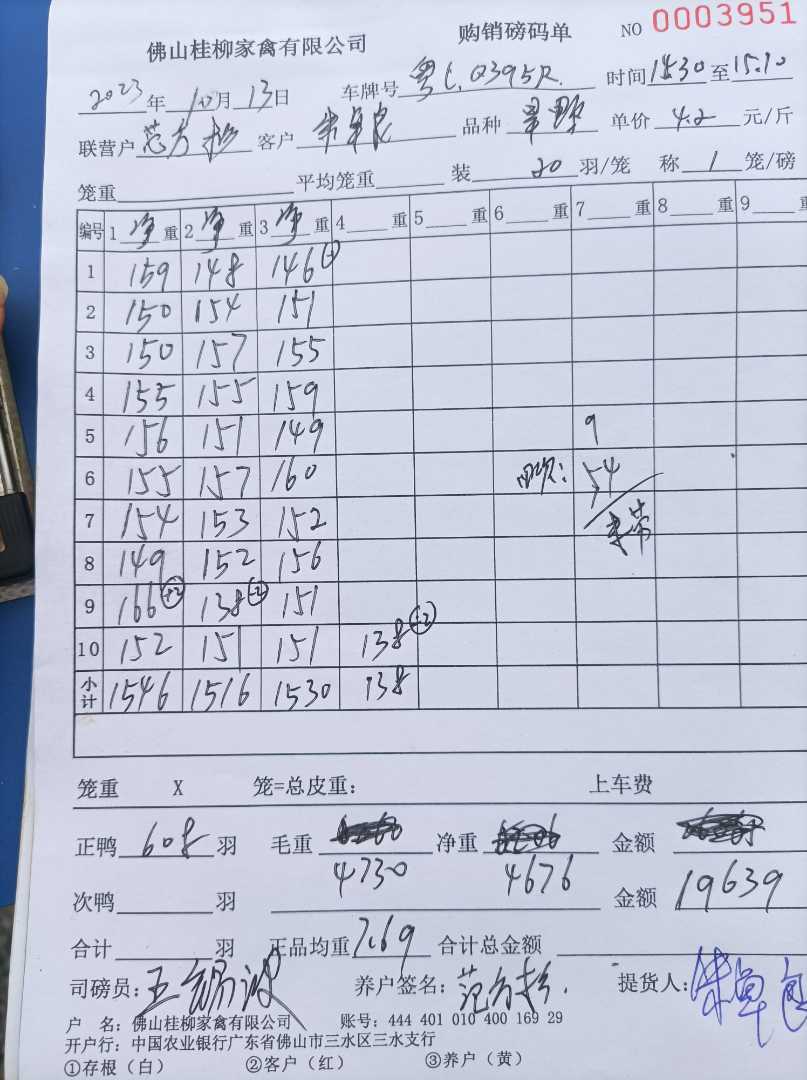 佛山桂柳家禽有限公司 购销磅码单 NO 0003951
2023年10月13日 车牌号 粤C.Q395R. 时间14:30至15:10
联营户 范方彬 客户 朱卓良 品种 单价 4.2 元/斤
笼重 平均笼重 装 20 羽/笼 称 1 笼/磅
编号 1 净 重 2 净 重 3 净 重 4 重 5 重 6 重 7 重 8 重 9
1 159 148 146
2 150 154 151
3 150 157 155
4 155 155 159
5 156 151 149 9
6 155 157 160 54
7 154 153 152
8 149 152 156
9 166 +2 138 -2 151
10 152 151 151 138 -2
小计 1546 1516 1530 138
笼重 X 笼=总皮重: 上车费
正鸭 608 羽 毛重 净重 金额
4730 4676
次鸭 羽 金额 19639
合计 羽 正品均重 7.69 合计总金额
司磅员: 王 养户签名: 范方彬. 提货人: 朱卓良
户 名: 佛山桂柳家禽有限公司 账号: 444 401 010 400 169 29
开户行: 中国农业银行广东省佛山市三水区三水支行
①存根（白） ②客户（红） ③养户（黄）